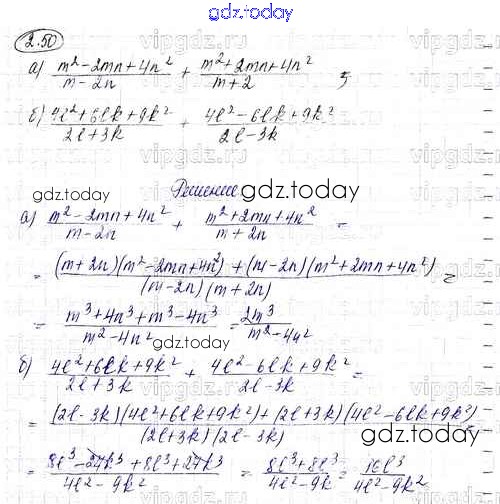 gdz.today
2.50
а) (m² - 2mn + 4n²)/(m - 2n) + (m² + 2mn + 4n²)/(m + 2) ;
б) (4l² + 6lk + 9k²)/(2l + 3k) + (4l² - 6lk + 9k²)/(2l - 3k)
gdz.today
Решение gdz.today
а) (m² - 2mn + 4n²)/(m - 2n) + (m² + 2mn + 4n²)/(m + 2n) =
= ((m + 2n)(m² - 2mn + 4n²) + (m - 2n)(m² + 2mn + 4n²))/((m - 2n)(m + 2n)) =
= (m³ + 4n³ + m³ - 4n³)/(m² - 4n²) = 2m³/(m² - 4n²)
gdz.today
б) (4l² + 6lk + 9k²)/(2l + 3k) + (4l² - 6lk + 9k²)/(2l - 3k) =
= ((2l - 3k)(4l² + 6lk + 9k²) + (2l + 3k)(4l² - 6lk + 9k²))/((2l + 3k)(2l - 3k)) =
gdz.today
= (8l³ - 27k³ + 8l³ + 27k³)/(4l² - 9k²) = (8l³ + 8l³)/(4l² - 9k²) = 16l³/(4l² - 9k²)
gdz.today